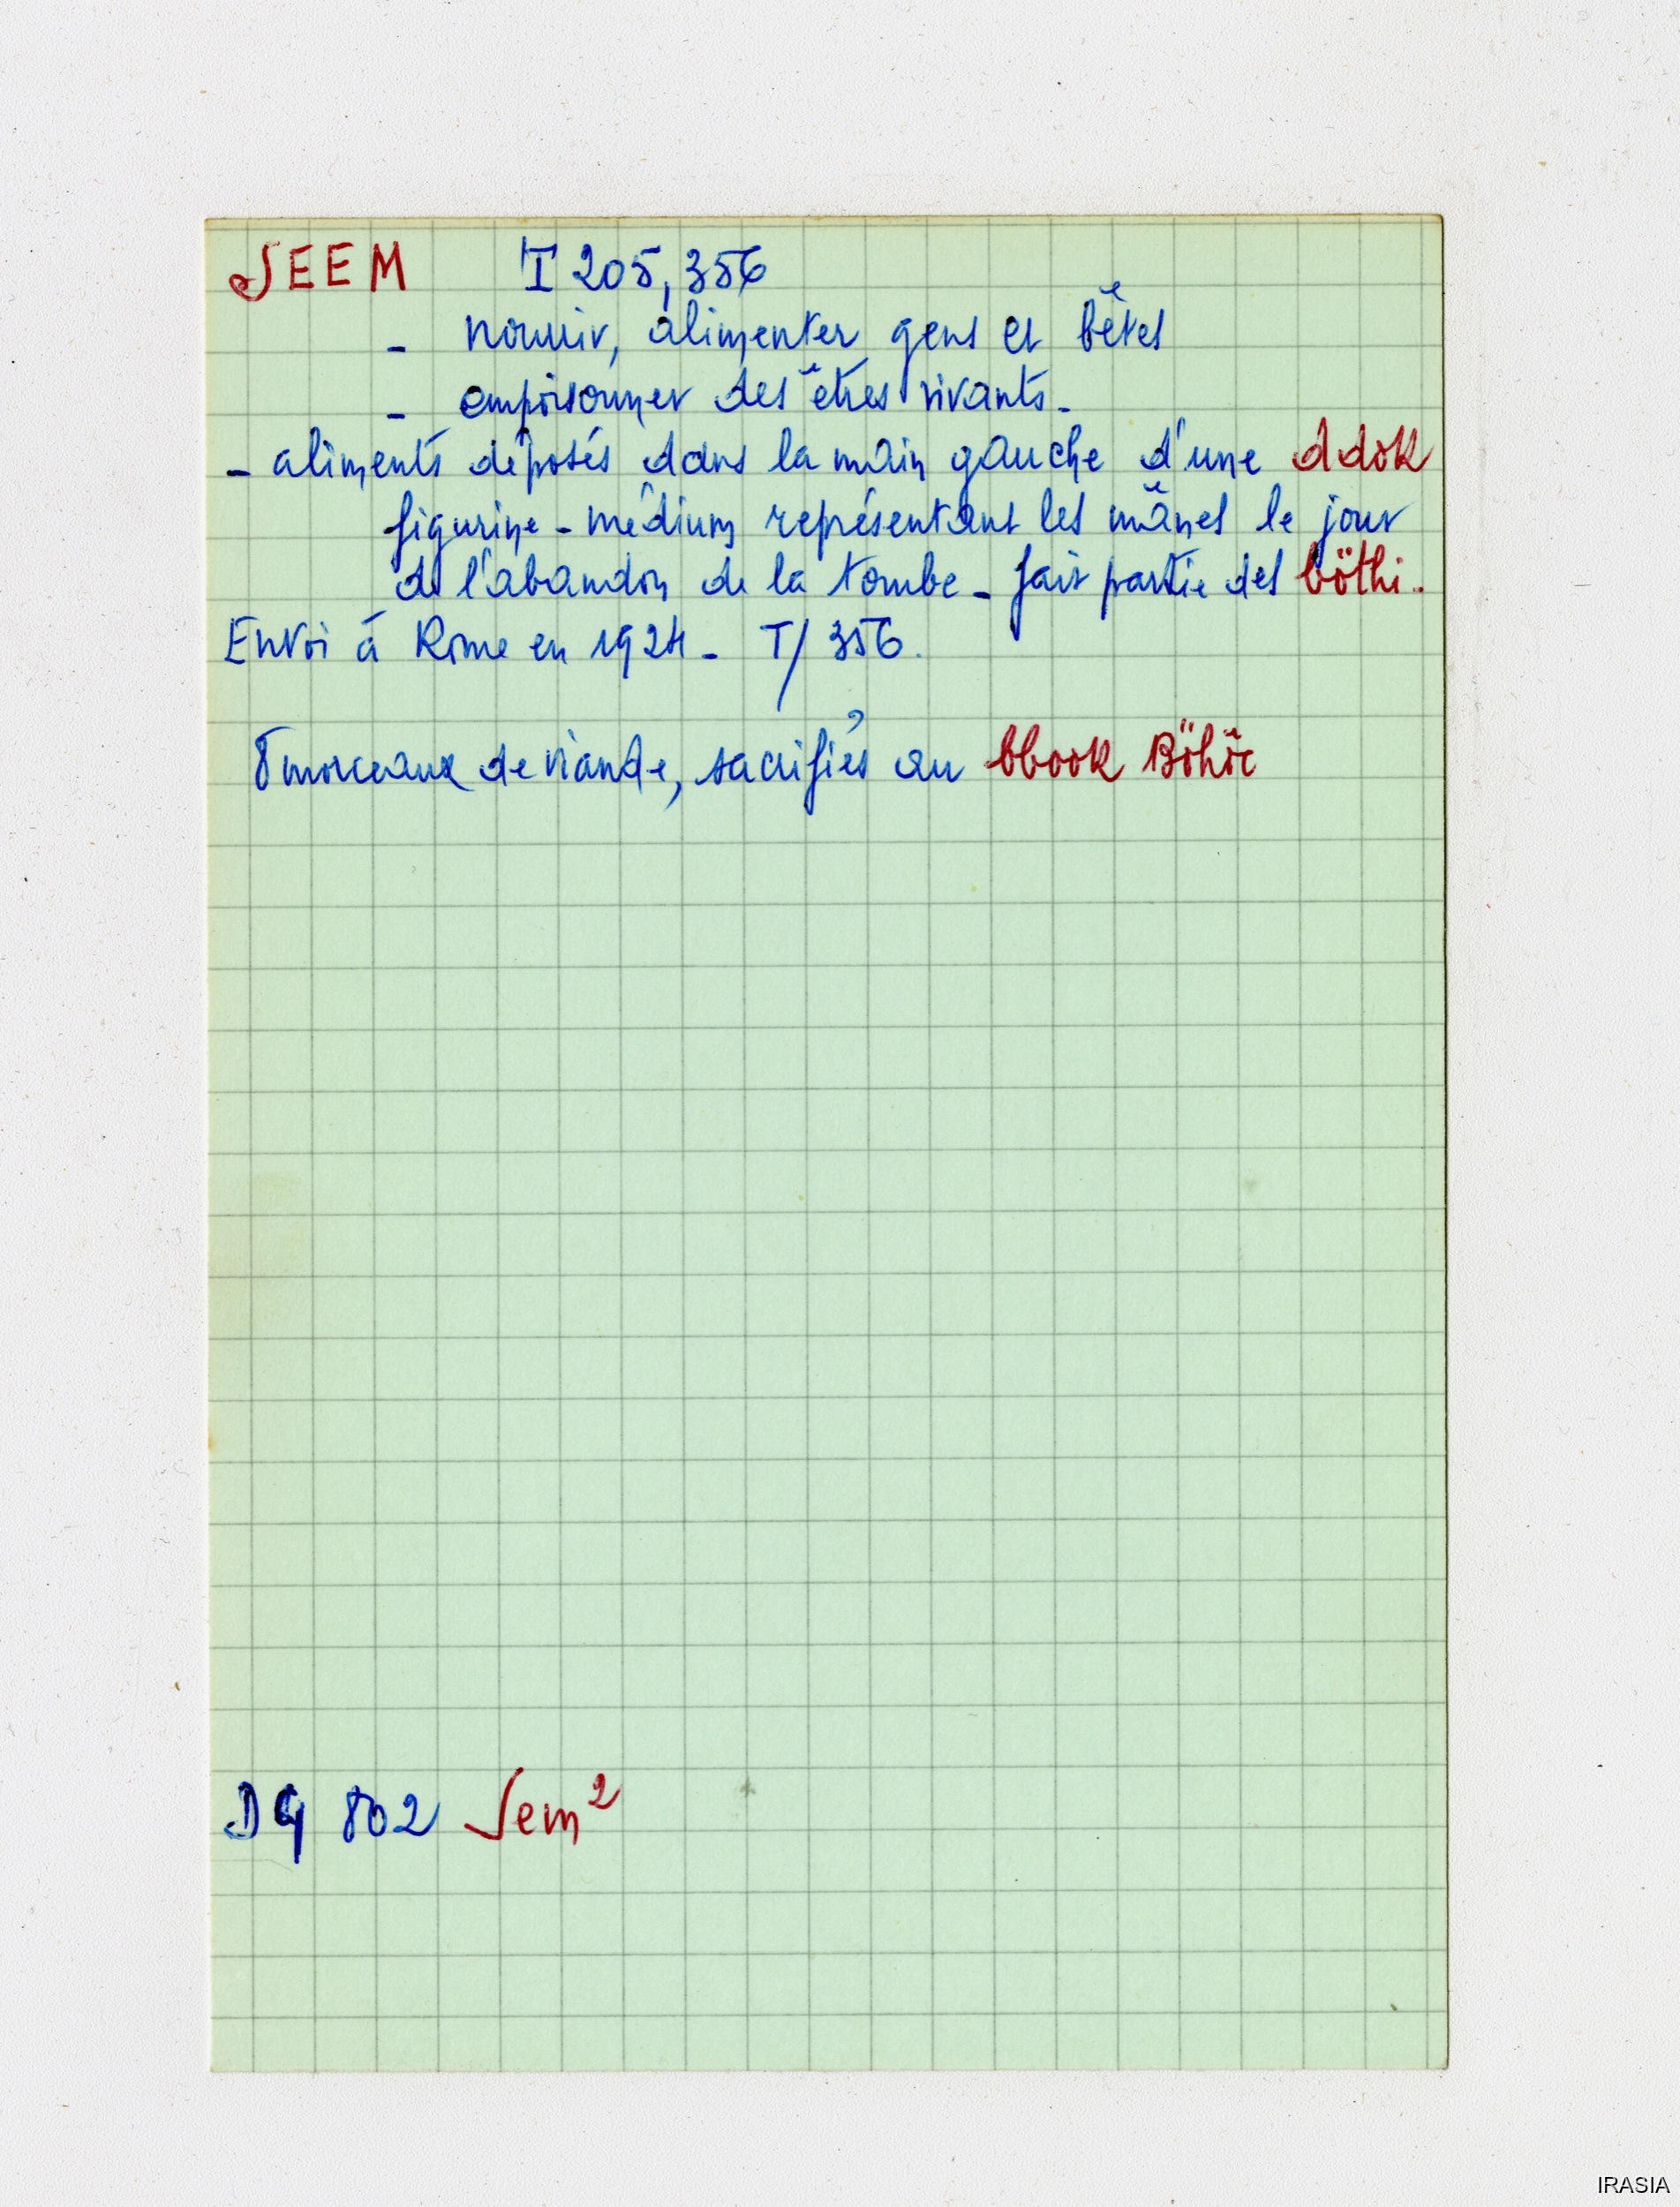 SEEM I 205, 356
- nourrir, alimenter gens et bêtes
- empoisonner des êtres vivants -
- aliments déposés dans la main gauche d'une ddök
figurine - médium représentant les mânes le jour
de l'abandon de la tombe - fait partie des böthi.
Envoi à Rome en 1924 - T/ 356.
8 morceaux de viande, sacrifiés au bbook Böhöc
DG 802 Sem²
IRASIA